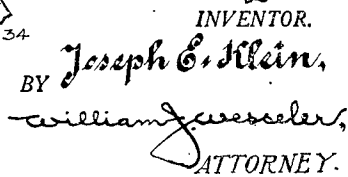 34
INVENTOR.
Joseph E. Klein,
BY
William J. Wesseler,
ATTORNEY.